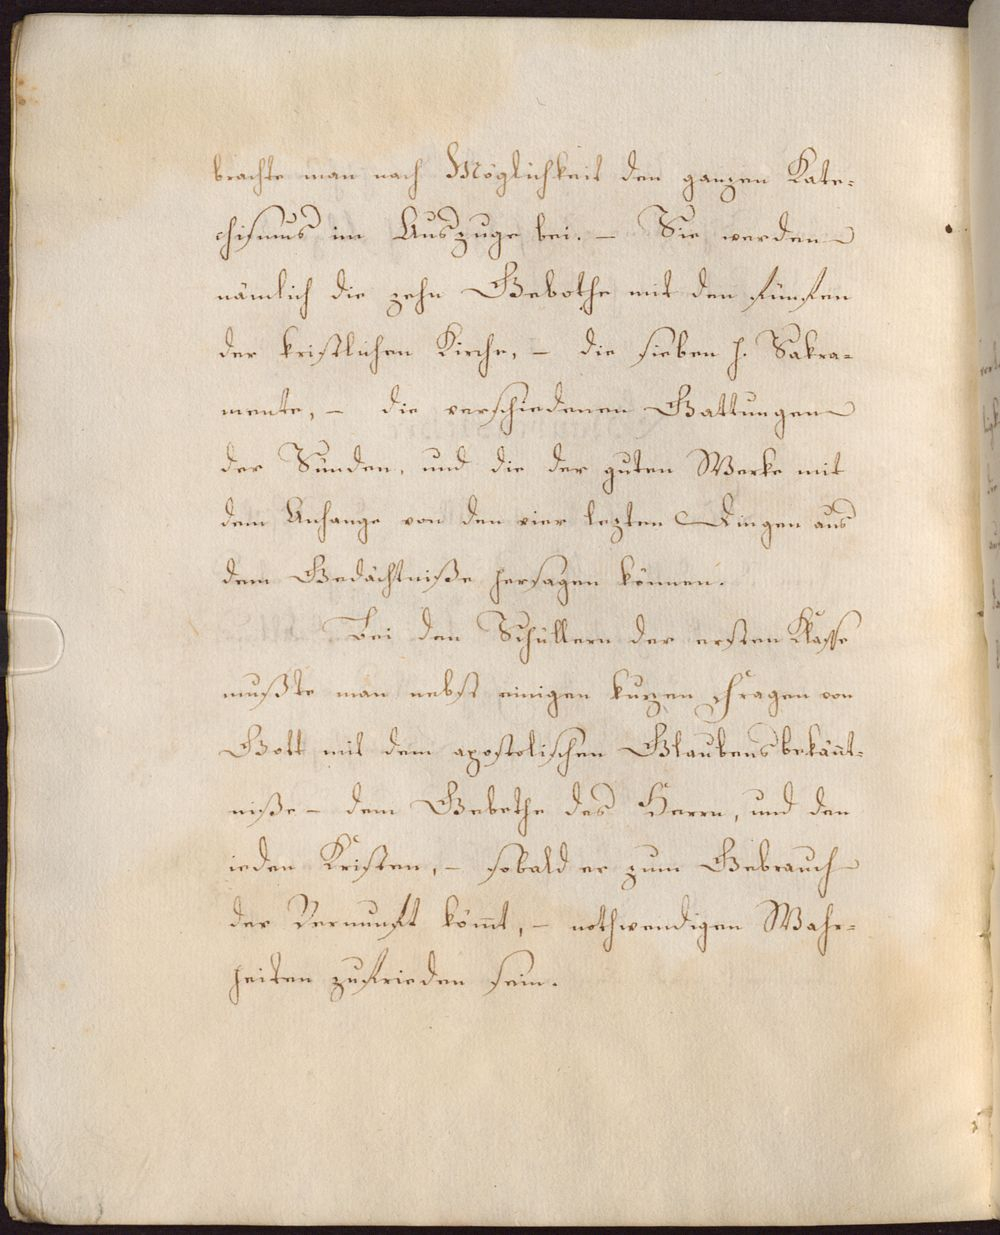 brachte man nach Möglichkeit den ganzen Kate-
chismus im Auszuge bei. – Sie werden
nämlich die zehn Gebothe mit den fünfen
der kristlichen Kirche, – die sieben h. Sakra-
mente, – die verschiedenen Gattungen
der Sünden, und die der guten Werke mit
dem Anhange von den vier lezten Dingen aus
dem Gedächtniße hersagen können.
Bei den Schüllern der ersten Klasse
mußte man nebst einigen kurzen Fragen von
Gott mit dem apostolischen Glaubensbekänt-
niße – dem Gebethe des Herrn, und den
ieden Kristen, – sobald er zum Gebrauch
der Vernunft kömt, – nothwendigen Wahr-
heiten zufrieden sein.